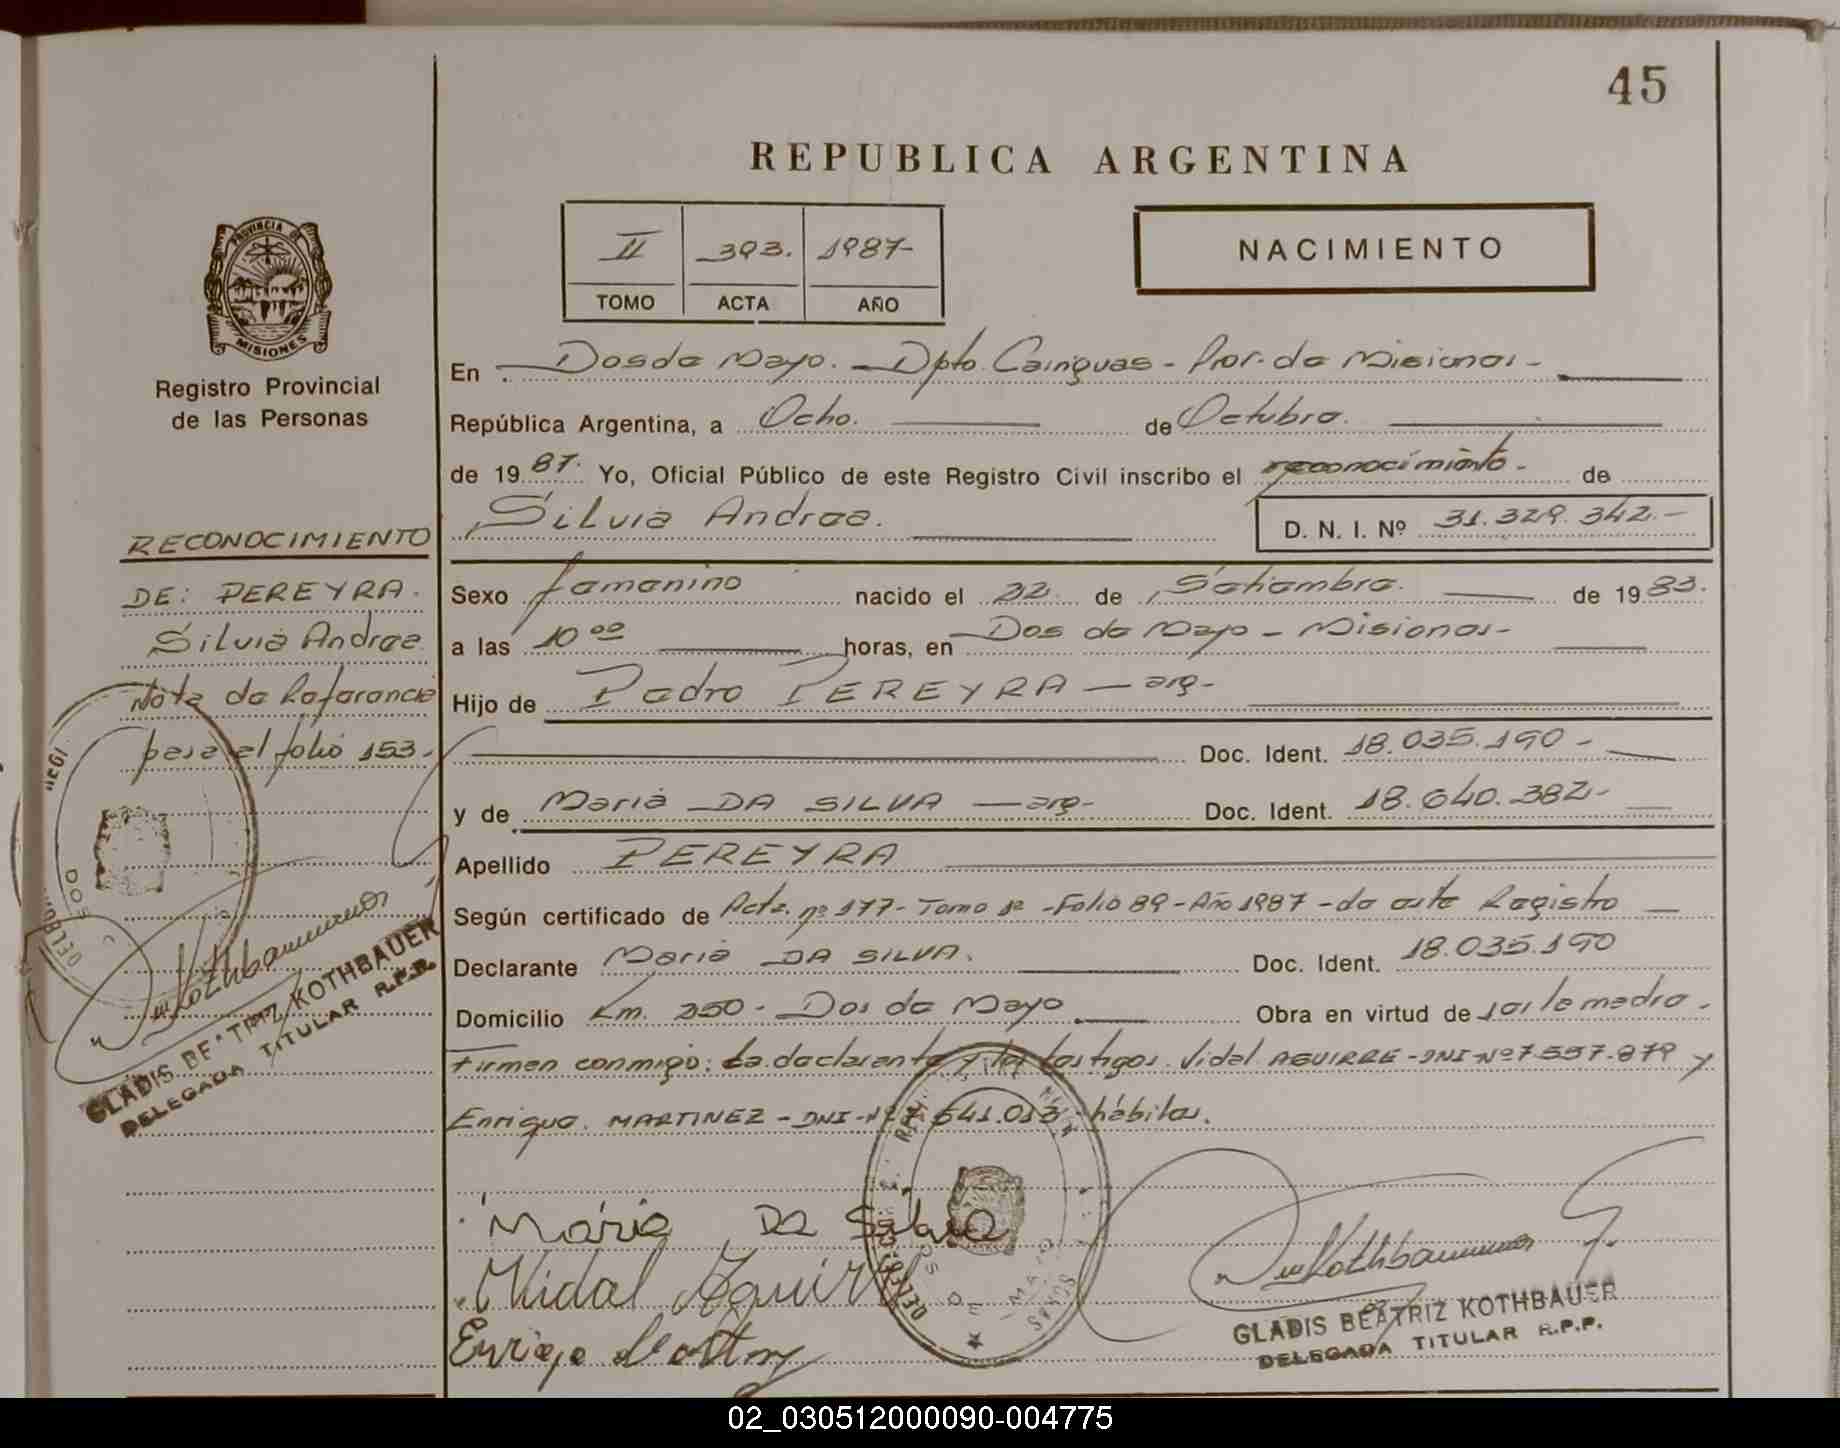 45
REPUBLICA ARGENTINA
II 393. 1987-
TOMO ACTA AÑO
NACIMIENTO
PROVINCIA DE
MISIONES
Registro Provincial
de las Personas
RECONOCIMIENTO
DE: PEREYRA.
Silvia Andrea
Nota de Referencia
para el folio 153.
DOS
GLADIS BEATRIZ KOTHBAUER
DELEGADA TITULAR R.P.P.
En Dos de Mayo. - Dpto. Cainguas - Prov. de Misiones -
República Argentina, a Ocho. de Octubre.
de 1987. Yo, Oficial Público de este Registro Civil inscribo el reconocimiento - de
Silvia Andrea.
D. N. I. Nº 31.329.342.-
Sexo femenino nacido el 22 de Setiembre. de 1983.
a las 10 ºº horas, en Dos de Mayo - Misiones -
Hijo de Pedro PEREYRA - arg-
Doc. Ident. 18.035.190 -
y de Maria DA SILVA - arg- Doc. Ident. 18.640.382-
Apellido PEREYRA
Según certificado de Acta. nº 177 - Tomo 1º - Folio 89 - Año 1987 - de este Registro
Declarante Maria DA SILVA. Doc. Ident. 18.035.190
Domicilio Km. 250 - Dos de Mayo Obra en virtud de ser la madre.
Firman conmigo: La declarante y los testigos. Vidal AGUIRRE - DNI - Nº 7.557.879 y
Enrique. MARTINEZ - DNI - Nº 7.641.013 - hábiles.
Maria Da Silva
Vidal Aguirre
GLADIS BEATRIZ KOTHBAUER
DELEGADA TITULAR R.P.P.
02_030512000090-004775